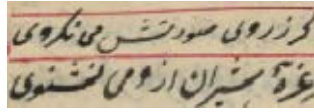 کر زروی صورتش می نکروی
غرهٔ شیران ازو می نشنوی